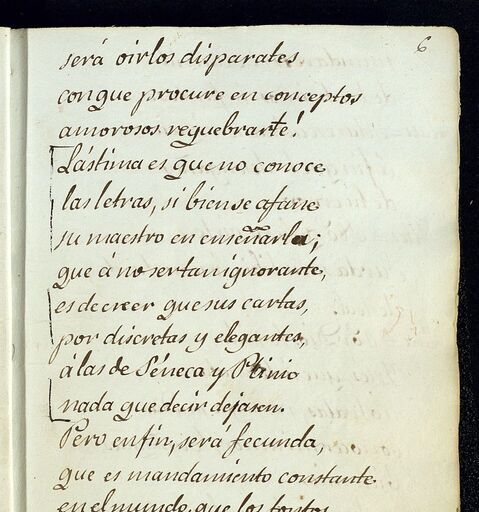 6
será oirlos disparates
con que procure en conceptos
amorosos requebrarte!
Lástima es que no conoce
las letras, si bien se afane
su maestro en enseñarla;
que á no ser tan ignorante,
es de creer que sus cartas,
por discretas y elegantes,
á las de Séneca y Plinio
nada que decir dejasen.
Pero en fin, será fecunda,
que es mandamiento constante
en el mundo, que los tontos